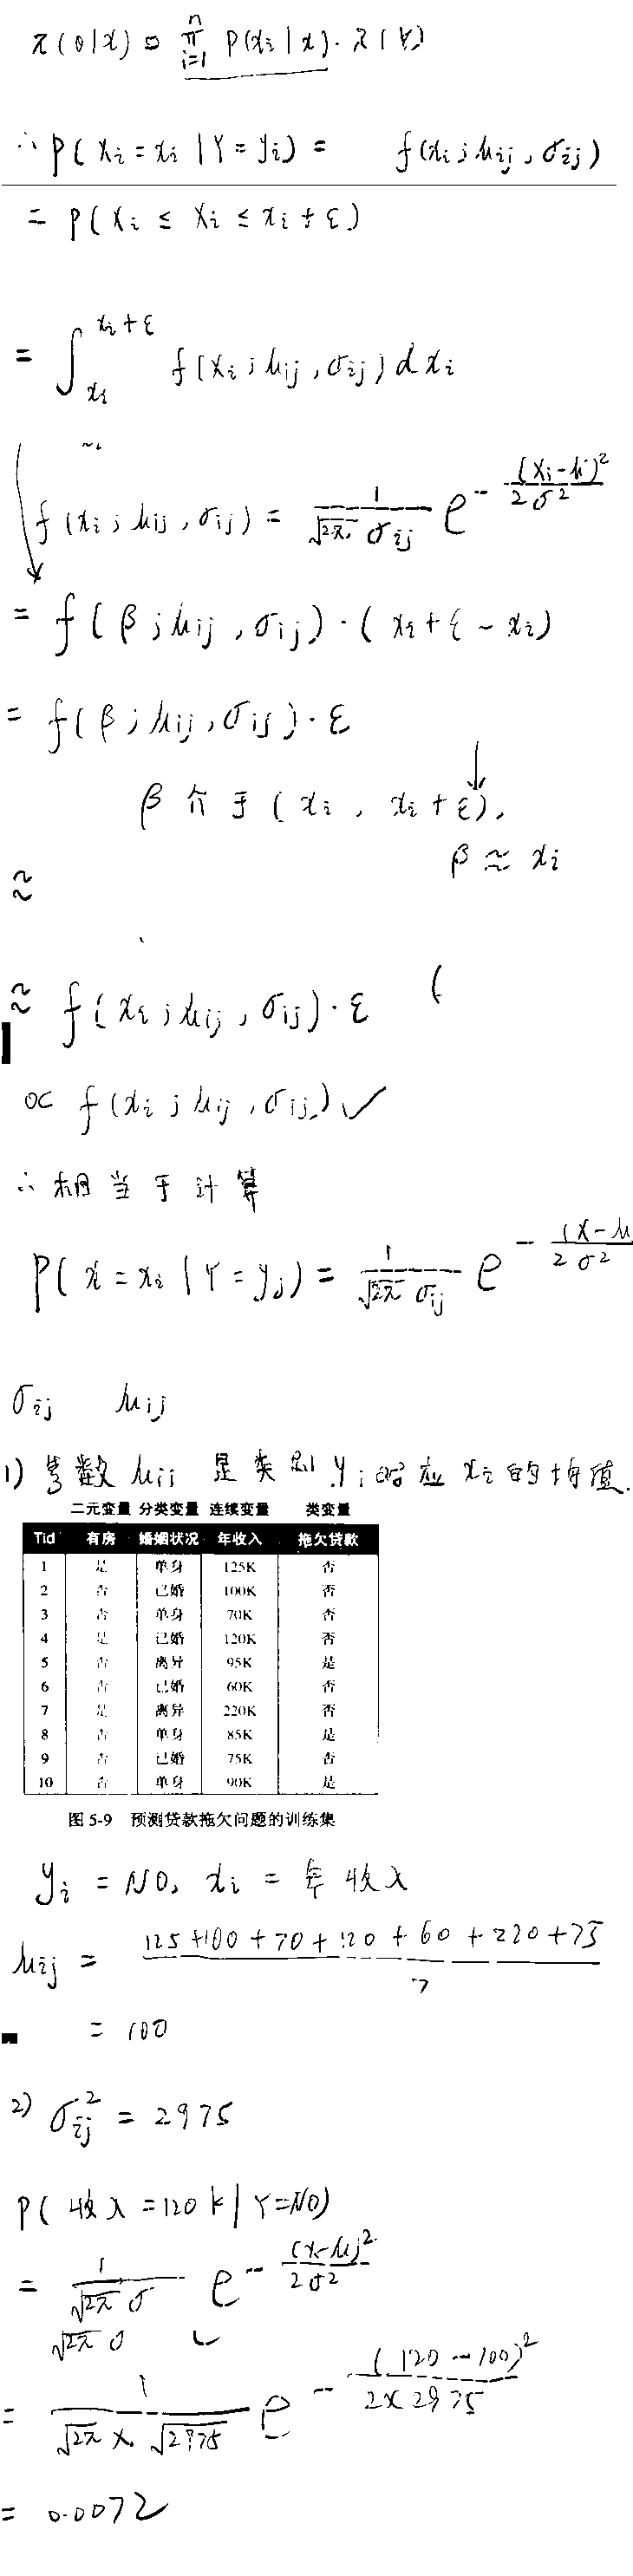 π(θ|x) ∝ ∏_{i=1}^{n} P(x_i|x)·π(Y)
∴ P(X_i = x_i | Y = y_i) = f(x_i; μ_ij, σ_ij)
= P(x_i ≤ X_i ≤ x_i + ε)
= ∫_{x_i}^{x_i+ε} f(x_i; μ_ij, σ_ij) d x_i
f(x_i; μ_ij, σ_ij) = 1/(√2π σ_ij) e^{-(x_i-μ)²/2σ²}
= f(β; μ_ij, σ_ij)·(x_i + ε - x_i)
= f(β; μ_ij, σ_ij)·ε
β 介于 (x_i, x_i + ε),
β ≈ x_i
≈
≈ f(x_i; μ_ij, σ_ij)·ε (
∝ f(x_i; μ_ij, σ_ij) ✓
∴ 相当于计算
P(x = x_i | Y = y_j) = 1/(√2π σ_ij) e^{-(x-μ/2σ²}
σ_ij μ_ij
1) 参数 μ_ij 是类别 y_j 对应 x_i 的均值.
二元变量 分类变量 连续变量 类变量
Tid 有房 婚姻状况 年收入 拖欠贷款
1 是 单身 125K 否
2 否 已婚 100K 否
3 否 单身 70K 否
4 是 已婚 120K 否
5 否 离异 95K 是
6 否 已婚 60K 否
7 是 离异 220K 否
8 否 单身 85K 是
9 否 已婚 75K 否
10 否 单身 90K 是
图 5-9 预测贷款拖欠问题的训练集
y_i = NO, x_i = 年收入
μ_ij = (125+100+70+120+60+220+75)/7
= 100
2) σ_ij² = 2975
P(收入 = 120k | Y = NO)
= 1/(√2π σ) e^{-(x-μ)²/2σ²}
√2π σ
= 1/(√2π × √2975) e^{-(120-100)²/2×2975}
= 0.0072